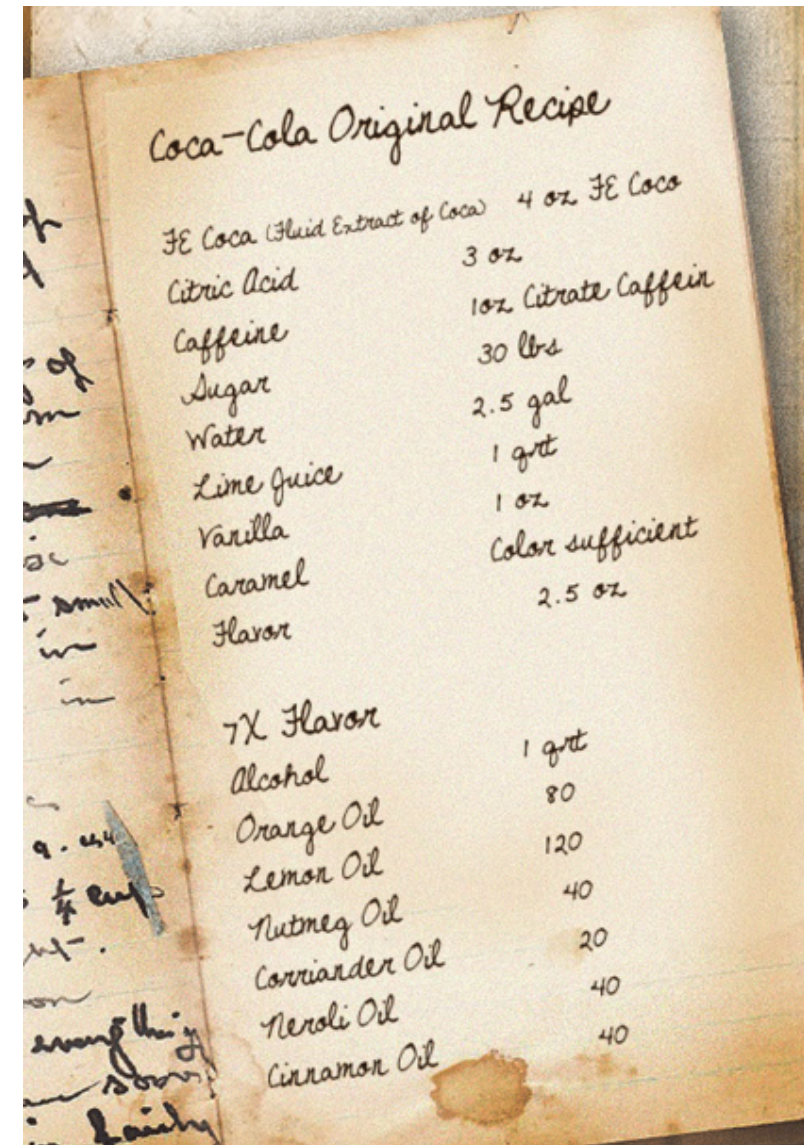 of
of
small
in
in
9.
1/4 cup
everything
Coca-Cola Original Recipe
FE Coca (Fluid Extract of Coca) 4 oz FE Coco
Citric Acid 3 oz
Caffeine 1oz Citrate Caffein
Sugar 30 lbs
Water 2.5 gal
Lime Juice 1 qrt
Vanilla 1 oz
Caramel Color sufficient
Flavor 2.5 oz
7X Flavor
Alcohol 1 qrt
Orange Oil 80
Lemon Oil 120
Nutmeg Oil 40
Corriander Oil 20
Neroli Oil 40
Cinnamon Oil 40